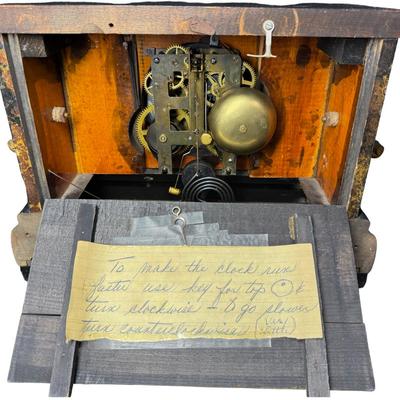 To make the clock run
faster use key for top ⊙ &
turn clockwise – To go slower
turn counterclockwise (Very
little)